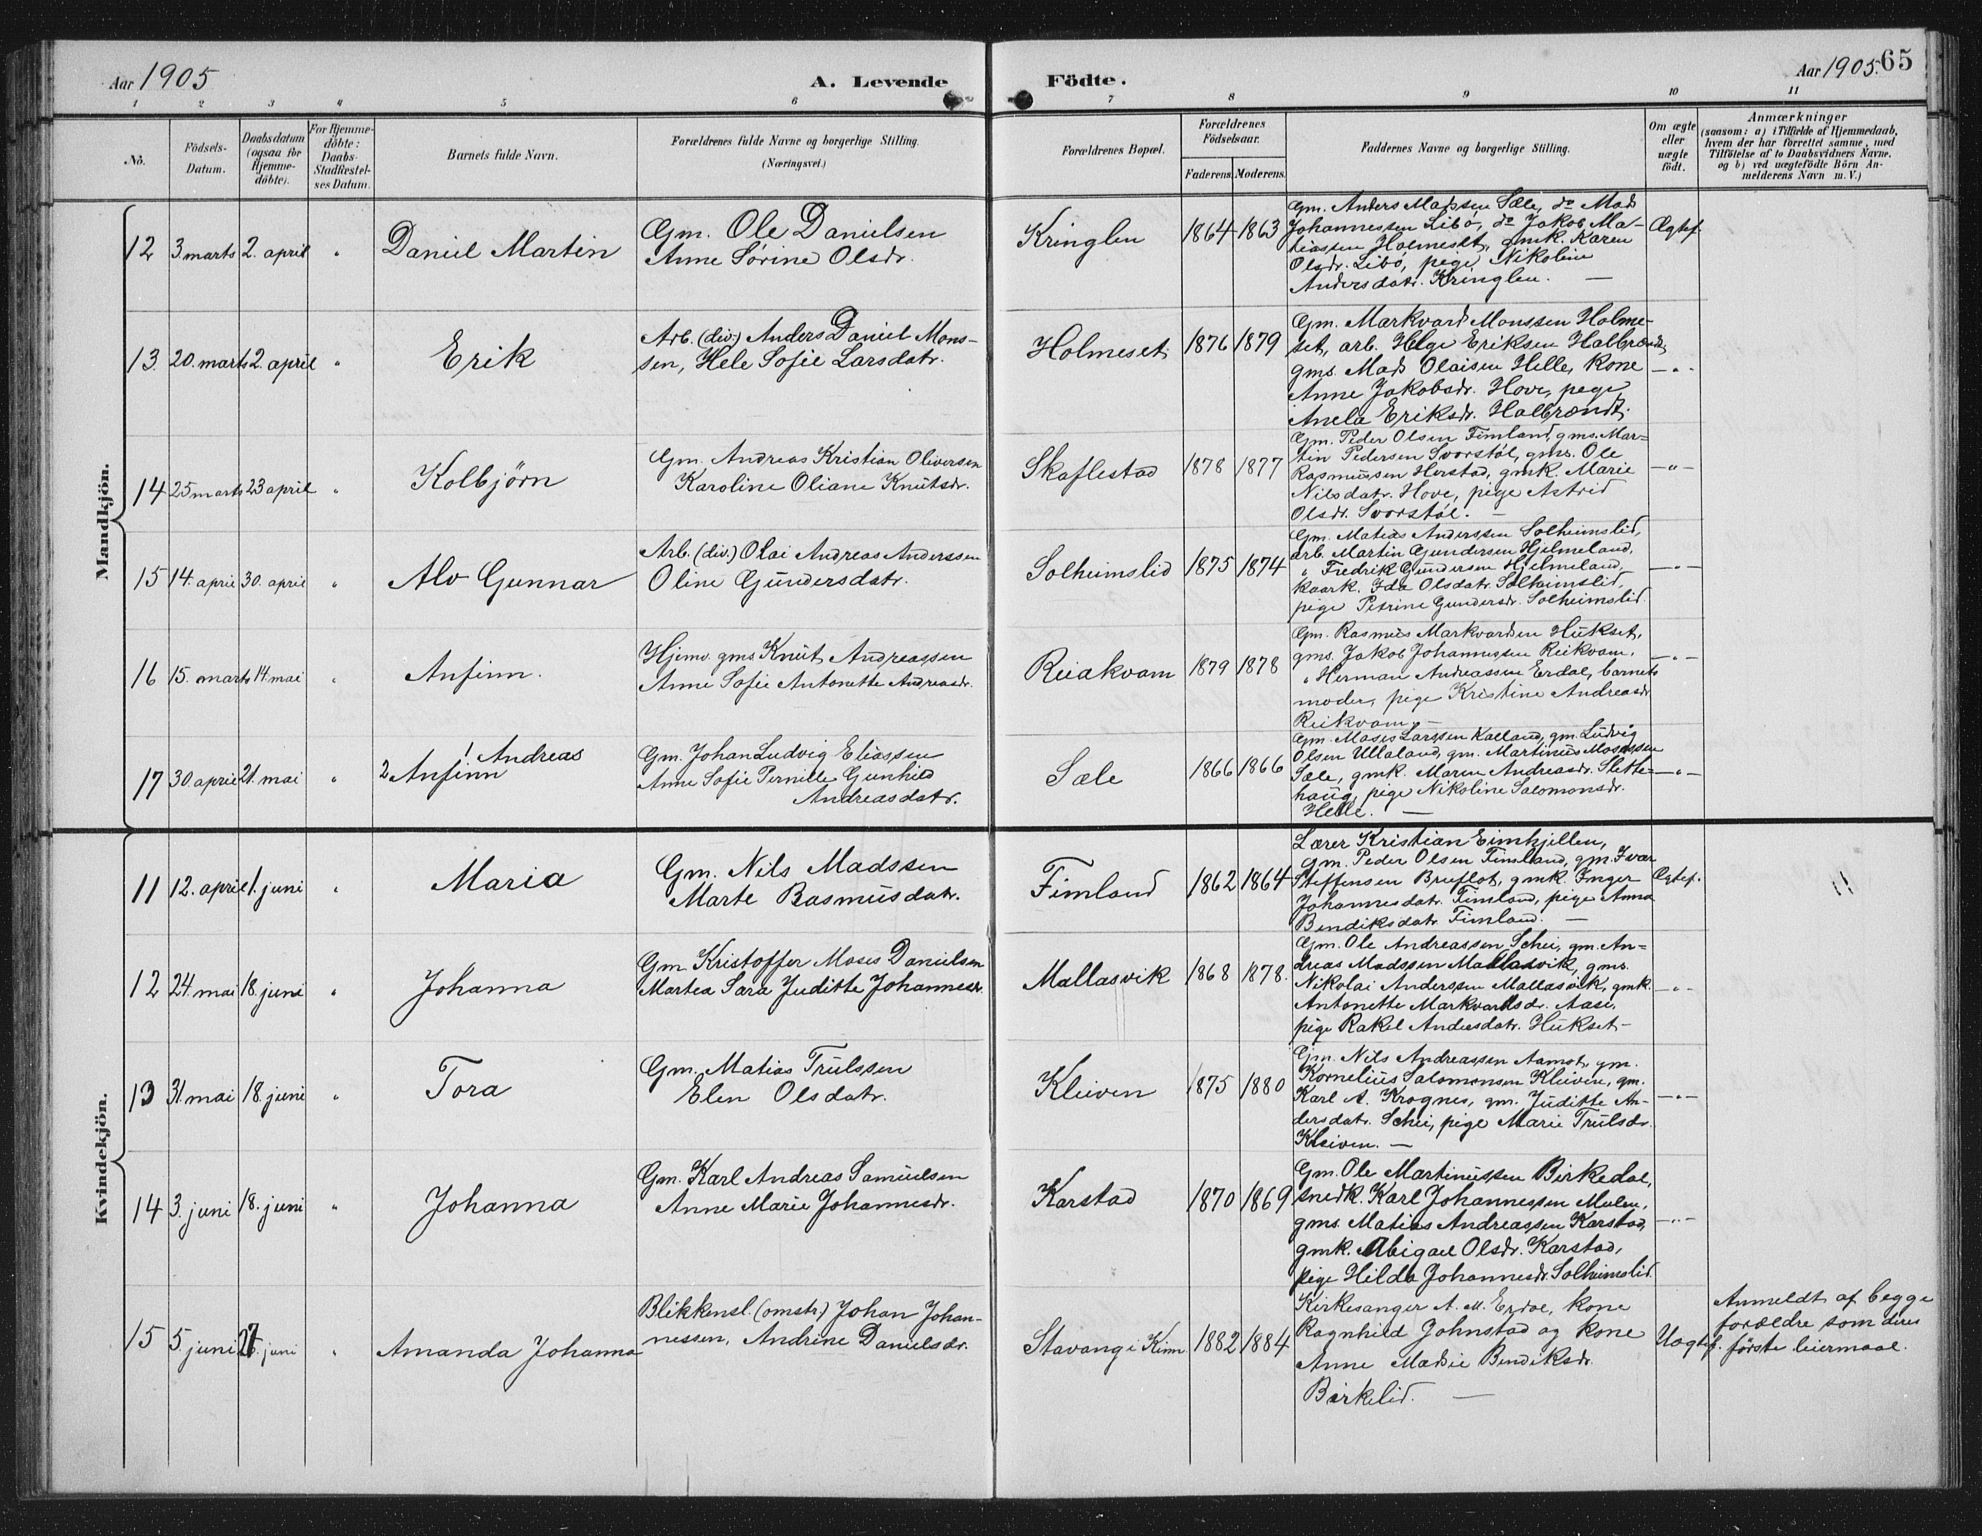 Aar 1905
A. Levende
Födte.
Aar 1905.
65
1 2 3 4 5 6 7 8 9 10 11
No.
Födsels-
Datum.
Daabsdatum
(ogsaa for
Hjemme-
döbte).
For Hjemme-
döbte:
Daabs-
Stadfæstel-
ses Datum.
Barnets fulde Navn.
Forældrenes fulde Navne og borgerlige Stilling.
(Næringsvei.)
Forældrenes Bopæl.
Forældrenes
Födselsaar.
Faderens. Moderens.
Faddernes Navne og borgerlige Stilling.
Om ægte
eller
uægte
født.
Anmærkninger
(saasom: a) i Tilfælde af Hjemmedaab,
hvem der har forrettet samme, med
Tilföielse af to Daabsvidners Navne,
og b) ved uægtefödte Börn An-
melderens Navn m. V.)
Mandkjön.
12 3 marts 2. april " Daniel Martin
Gm. Ole Danielsen
Anne Sørine Olsdr.
Kringlen 1864 1863
Gm. Anders Madssen Sæle, do Mads
Johannessen Libø, do Jakob Ma-
tiassen Holmeset, gmk. Karen
Olsdr. Libø, pige Nikoline
Andersdatr. Kringlen. —
Ægtef.
13. 20. marts 2. april " Erik
Arb. (div.) Anders Daniel Mons-
sen, Hele Sofie Larsdatr.
Holmeset 1876 1879
Gm. Markvard Monssen Holme-
set, arb. Helge Eriksen Halbrendt,
gms. Mads Olaisen Helle, kone
Anne Jakobsdr. Hove, pige
Anela Eriksdr. Halbrendt.
—"—
14 25 marts 23 april " Kolbjørn
Gm. Andreas Kristian Oliversen
Karoline Oliane Knutsdr.
Skaflestad 1878 1877
Gm. Peder Olsen Fimland, gms. Mar-
tin Pedersen Svorstøl, gms. Ole
Rasmussen Herstad, gmk. Marie
Nilsdatr. Hove, pige Astrid
Olsdr. Svorstøl. —
—"—
15 14. april 30. april " Alv Gunnar
Arb. (div.) Olai Andreas Anderssen
Oline Gundersdatr.
Solheimslid 1875 1874
Gm. Matias Anderssen Solheimslid,
arb. Martin Gundersen Hjelmeland,
" Fredrik Gundersen Hjelmeland,
kaark. Ida Olsdatr. Solheimslid,
pige Petrine Gundersdr. Solheimslid.
—"—
16 15. marts 14. mai " Anfinn.
Hjemv. gms. Knut Andreassen
Anne Sofie Antonette Andreasdr.
Reiakvam 1879 1878
Gm. Rasmus Markvardsen Hukset,
gms. Jakob Johannessen Reikvam,
" Herman Andreassen Erdal, barnets
moder, pige Kristine Andreasdr
Reikvam. —
—"—
17 30 april 21. mai " 2 Anfinn 1 Andreas
Gm. Johan Ludvig Eliassen
Anne Sofie Pernille Gunhild
Andreasdatr.
Sæle 1866 1866
Gm. Moses Larssen Kalland, gm. Ludvig
Olsen Ullaland, gm. Martinus Mosessen
Sæle, gmk. Maren Andreasdr. Slette-
haug, pige Nikoline Salomonsdr.
Helle. —
—"—
Kvindekjön.
11 12. april 1. juni " Maria
Gm. Nils Madssen
Marte Rasmusdatr.
Fimland 1862 1864
Lærer Kristian Eimhjellen,
gm. Peder Olsen Fimland, gm. Ivar
Steffensen Bruflot, gmk. Inger
Johannesdatr. Fimland, pige Anna
Bendiksdatr. Fimland. —
Ægtef.
12 24. mai 18. juni " Johanna
Gm. Kristoffer Moses Danielsen
Martea Sara Juditte Johannesdr.
Mallasvik 1868 1878.
Gm. Ole Andreassen Schei, gm. An-
dreas Madssen Mallasvik, gms.
Nikolai Anderssen Mallasvik, gmk.
Antonette Markvardsdr. Aase,
pige Rakel Andersdatr. Hukset —
—"—
13 31. mai 18. juni " Tora
Gm. Matias Trulssen
Elen Olsdatr.
Kleiven 1875 1880
Gm. Nils Andreassen Aamot, gm.
Kornelius Salomonsen Kleiven, gm.
Karl A. Krognes, gm. Juditte An-
dersdatr. Schei, pige Marie Trulsdr.
Kleiven. —
—"—
14 3. juni 18. juni " Johanna
Gm. Karl Andreas Samuelsen
Anne Marie Johannesdr.
Karstad 1870 1869
Gm. Ole Martinussen Birkedal,
snedk. Karl Johannessen Mulen,
gms. Matias Andreassen Karstad,
gmk. Abigael Olsdr. Karstad,
pige Hilda Johannesdr. Solheimslid.
—"—
15 5. juni juni " Amanda Johanna
Blikkensl. (omstr.) Johan Johan-
nessen, Andrine Danielsdr.
Stavang i Kinn 1882 1884
Kirkesanger A. M. Erdal, kone
Ragnhild Johnstad og kone
Anne Madsie Bendiksdr.
Birkelid. —
Uægtef.
Anmeldt af begge
forældre som deres
første leiermaal.